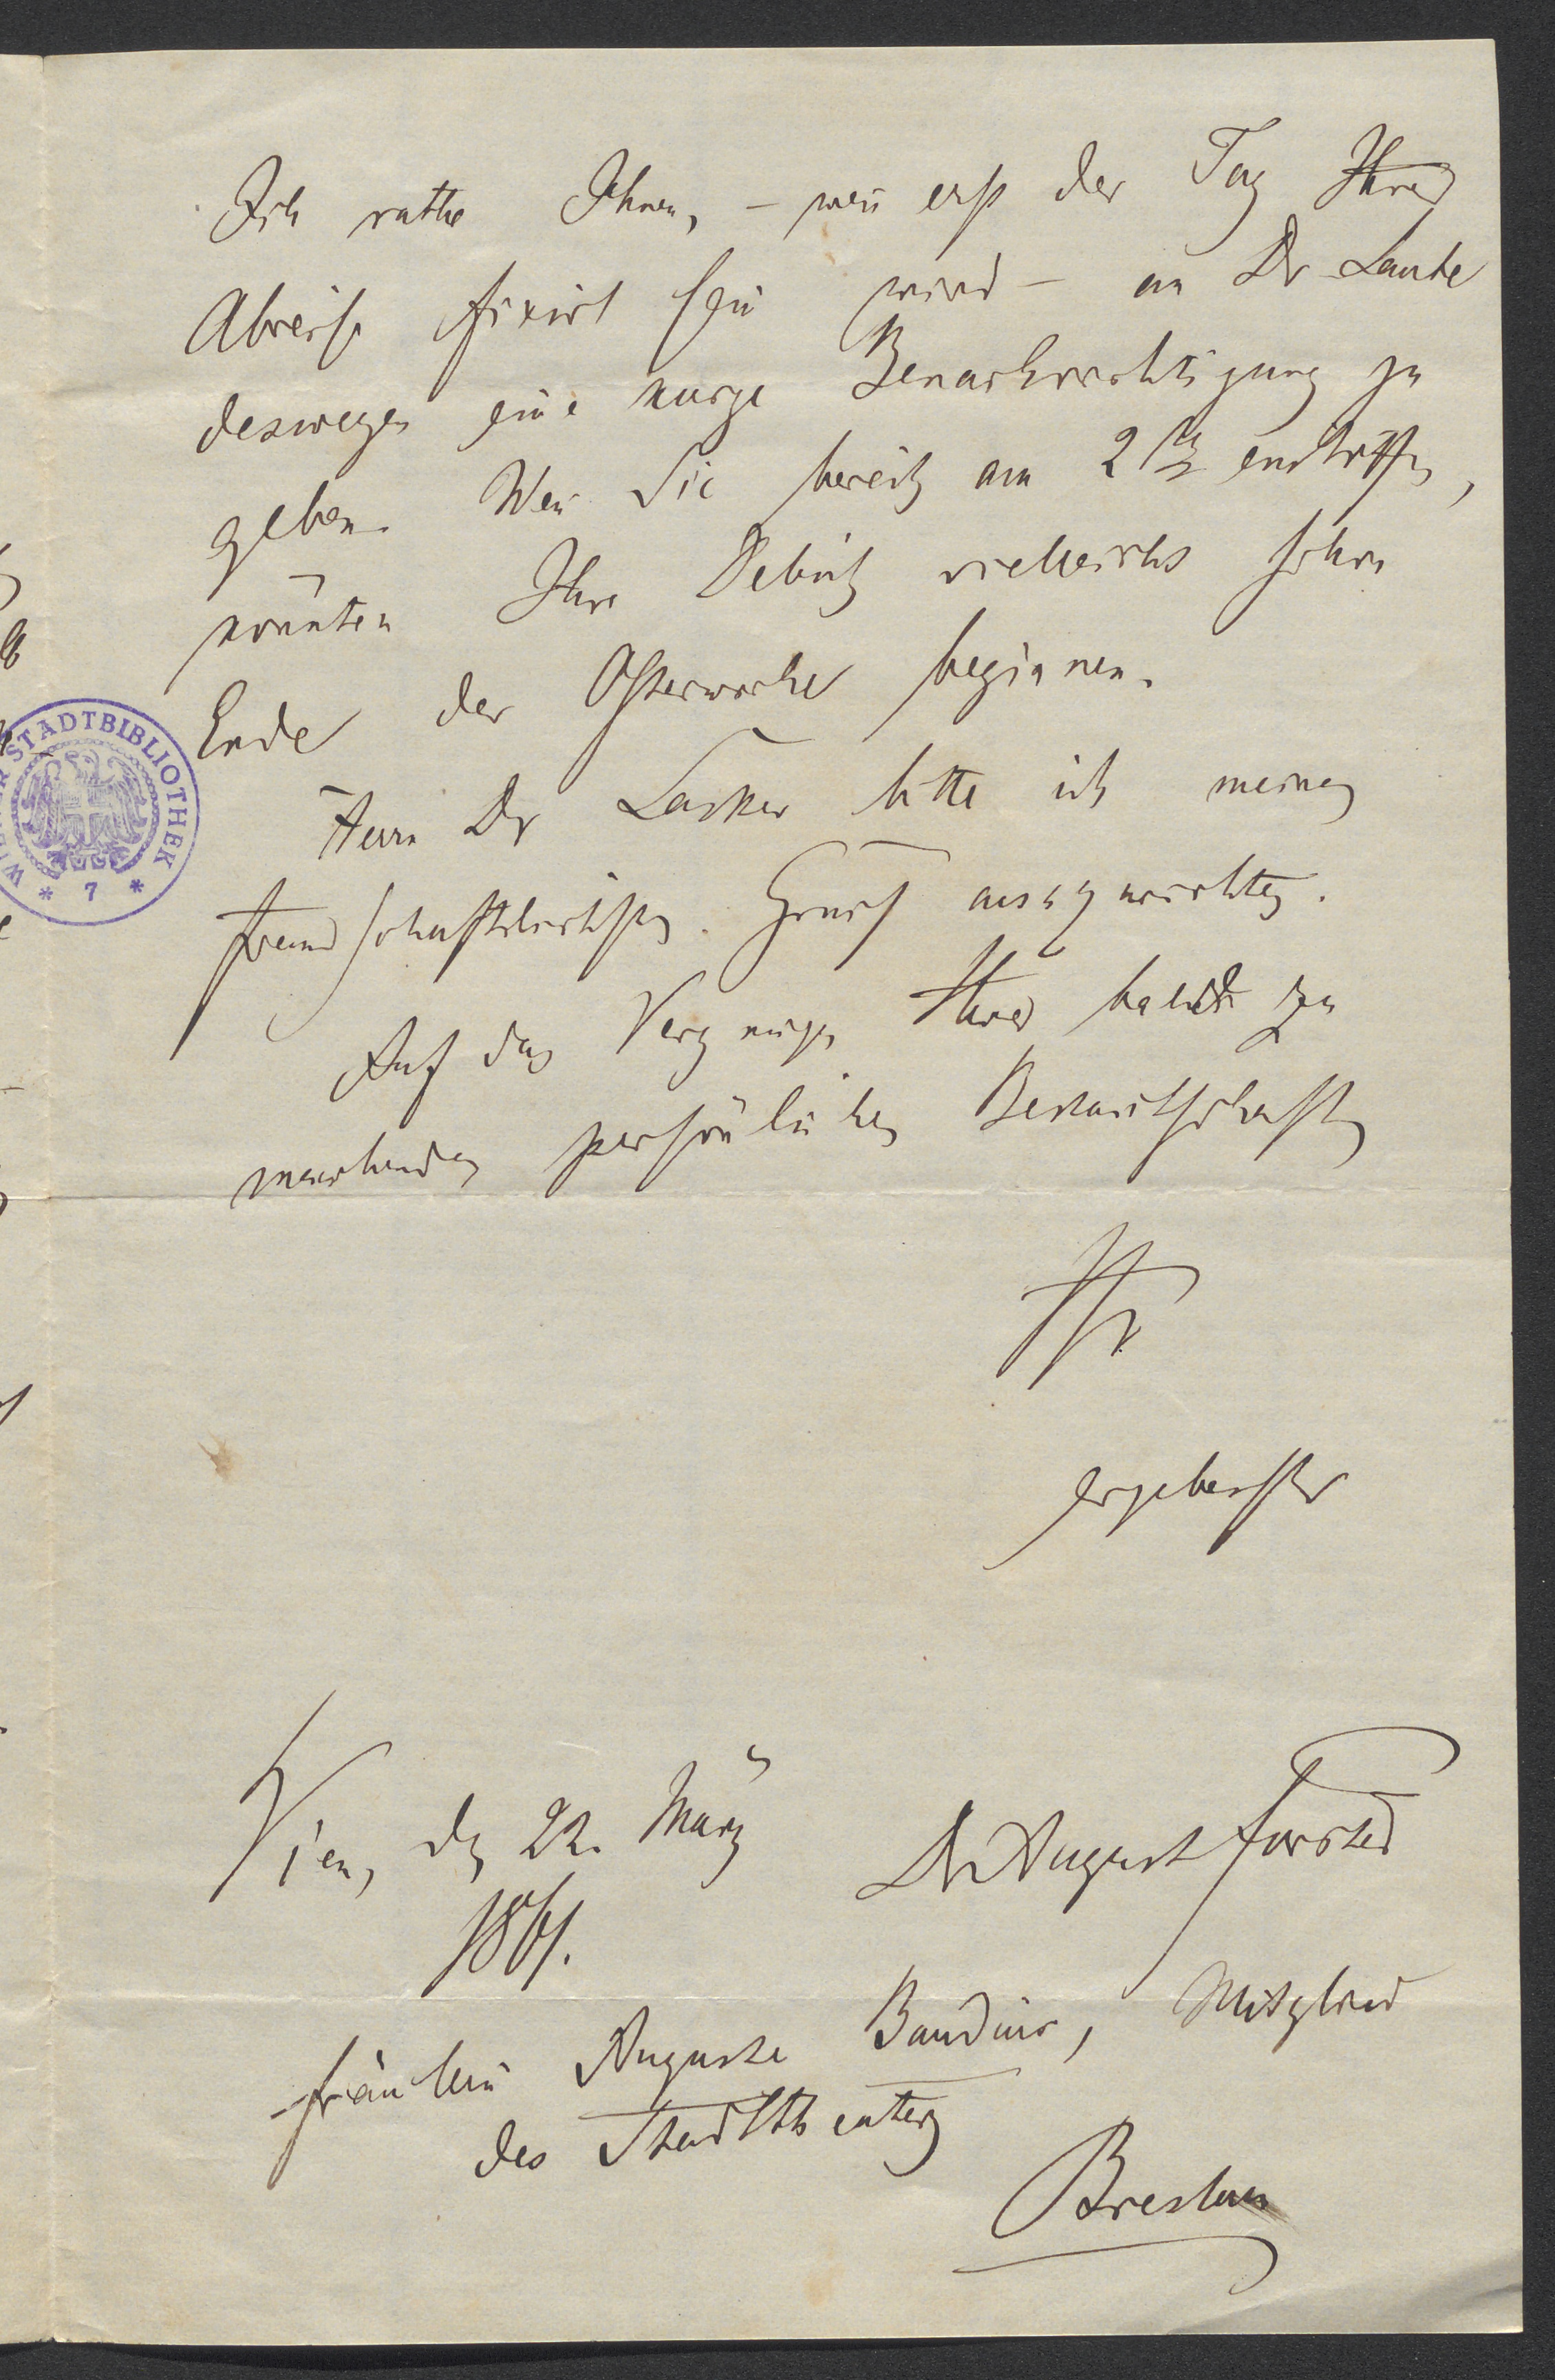 Ich rathe Ihnen, – wen̄ erst der Tag Ihrer
Abreise fixirt sein wird – an Dr Laube
deswegen eine kurze Benachrichtigung zu
geben. Wen̄ Sie bereits am 2ten eintreffen,
kön̄ten Ihre Debuts vielleicht schon
Ende der Osterwoche beginnen.
Herrn Dr Lasker bitte ich meinen
freundschaftlichsten Gruß auszurichten.
Auf das Vergnügen Ihrer bald zu
machenden persön̄lichen Bekan̄tschaft
Ihr
ergebenster
Wien, den 22. März
1861.
Dr August Förster
Fräulein Auguste Baudius, Mitglied
des Stadttheaters
Breslau
WIENER STADTBIBLIOTHEK
* 7 *